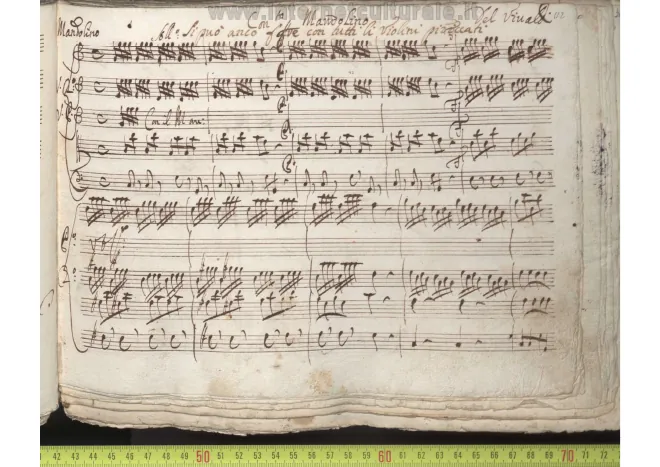 www.internetculturale.it
Con.to Mandolino Del Vivaldi
Mandolino All.o Si può anco fare con tutti li Violini pizzicati
Con il P.mo
42 43 44 45 46 47 48 49 50 51 52 53 54 55 56 57 58 59 60 61 62 63 64 65 66 67 68 69 70 71 72